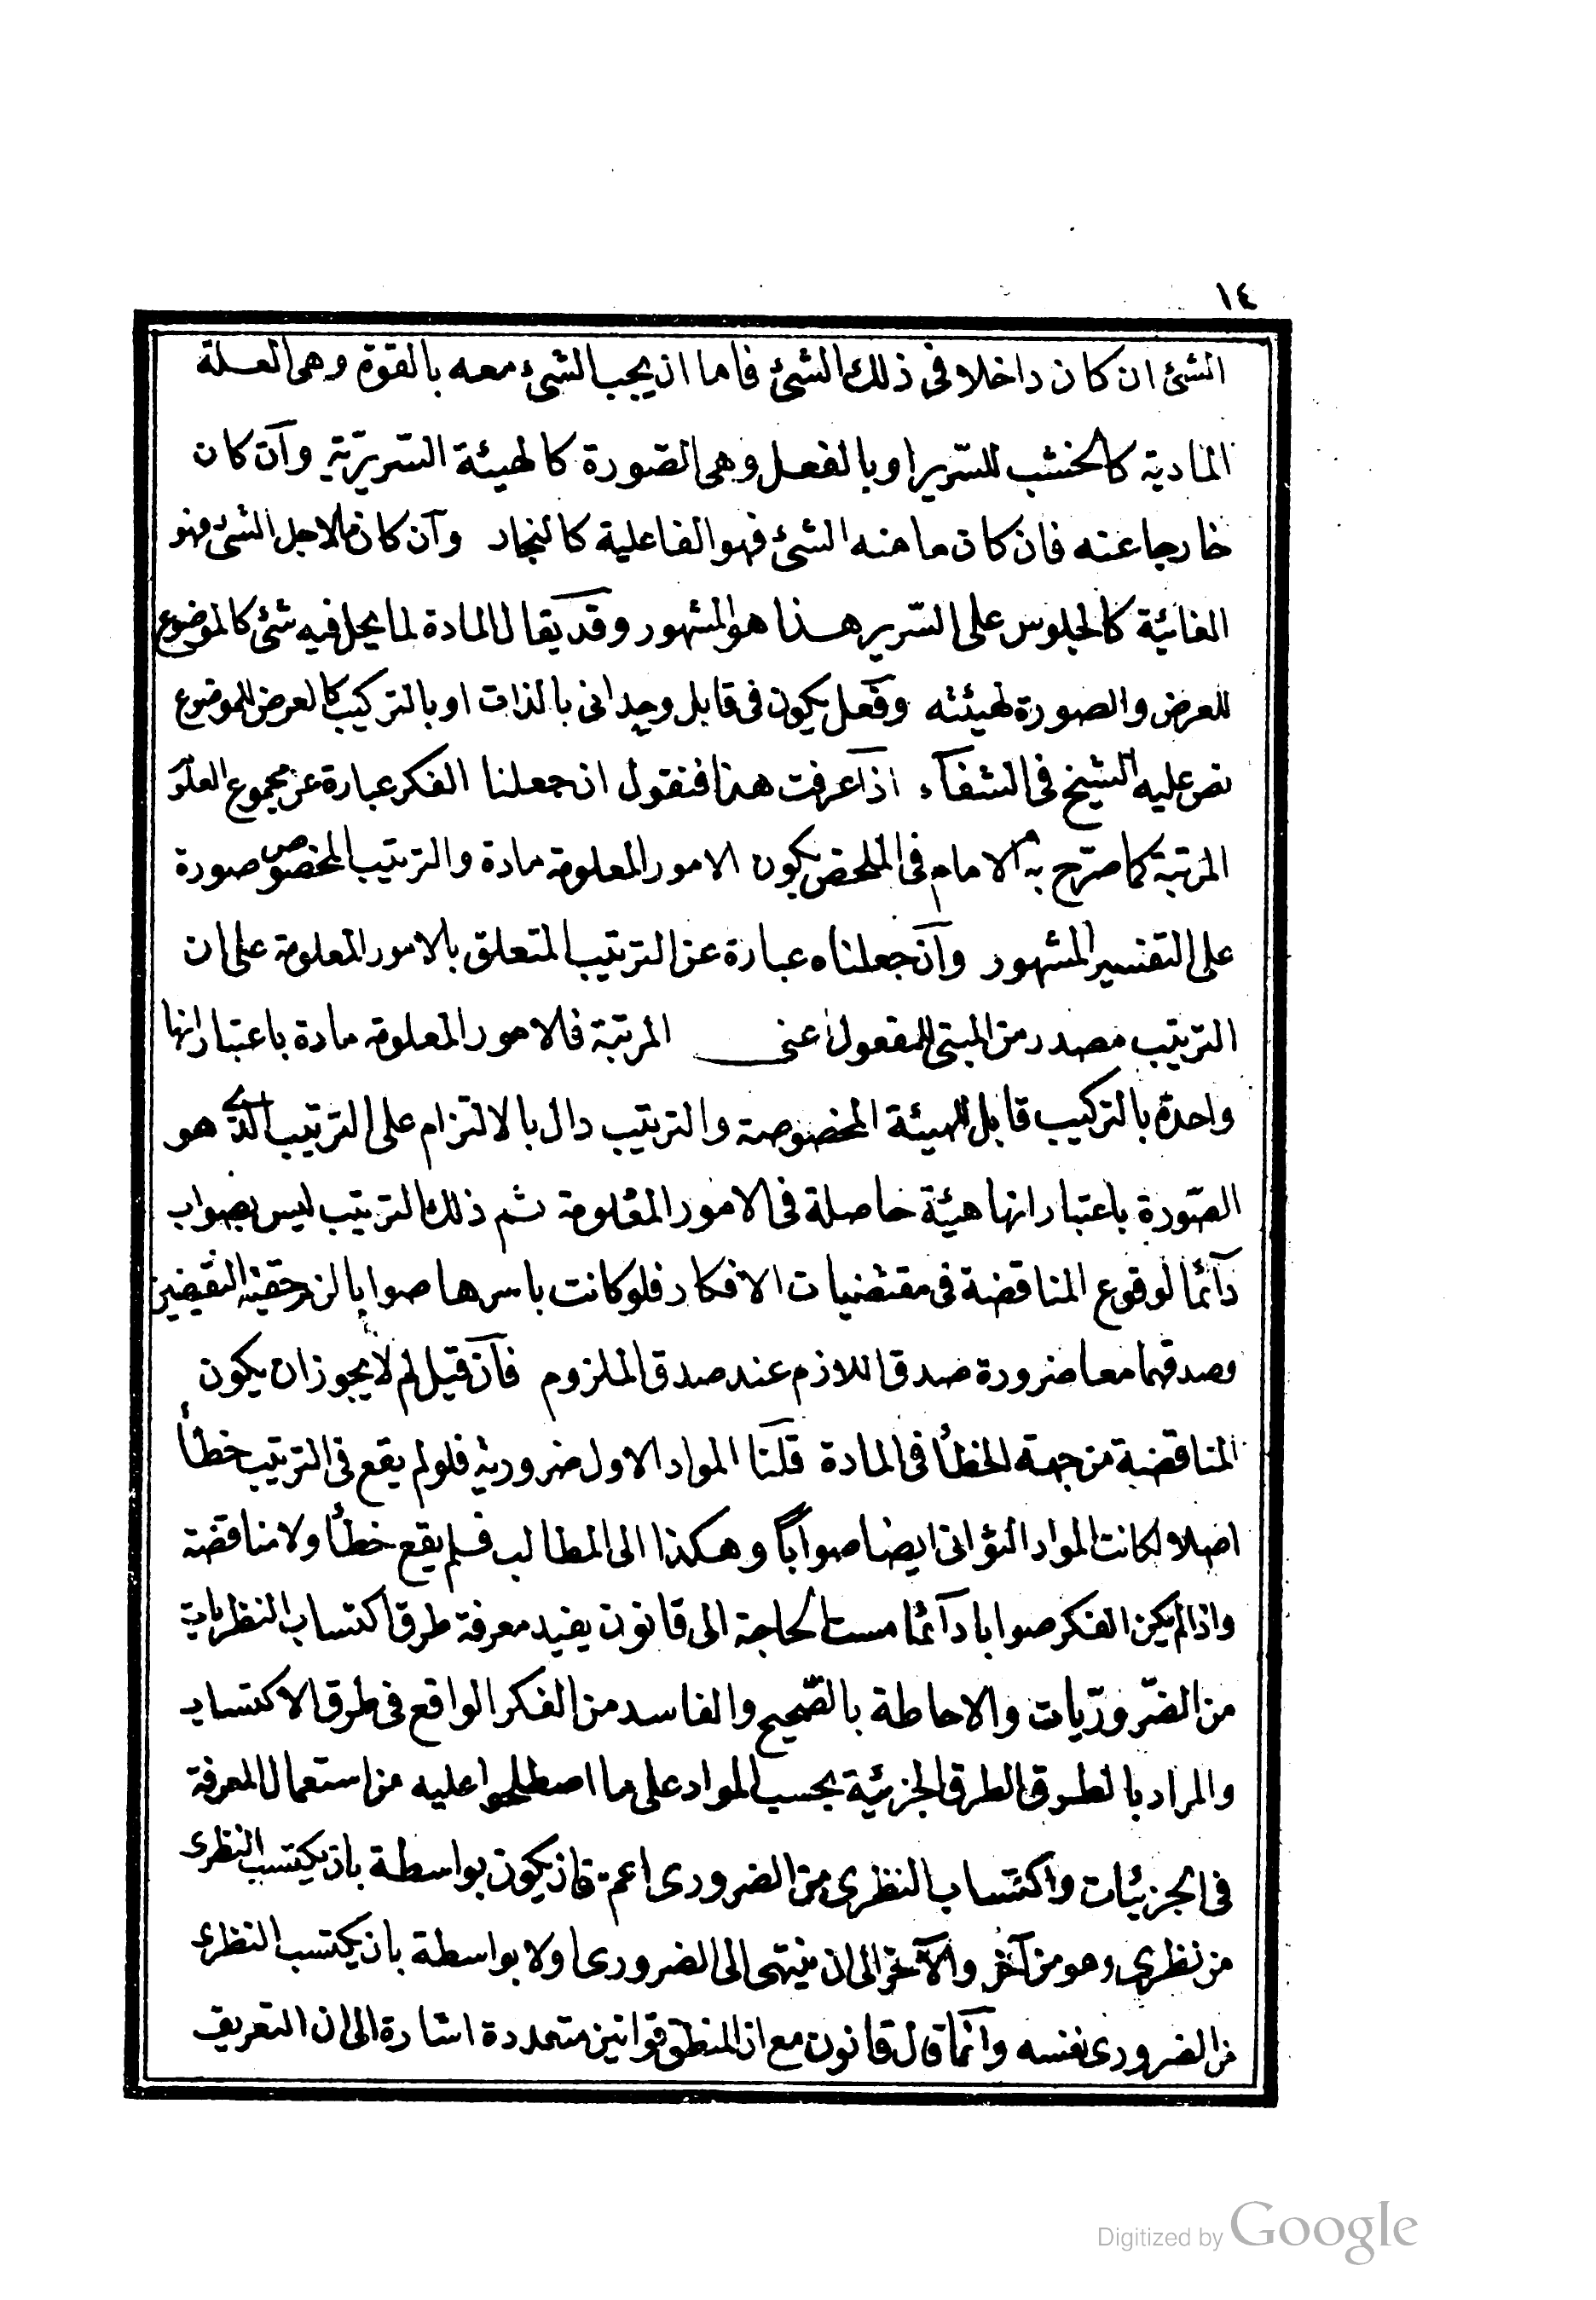 ١٤
الشئ ان كان داخلا فى ذلك الشئ فاما ان يجب الشئ معه بالقوة وهى العلة
المادية كالخشب للسّرير او بالفعل وهى الصّورة كالهيئة السّريريّة وآن كان
خارجا عنه فان كان ما منه الشئ فهو الفاعلية كالنجار وآن كان ما لاجل الشئ فهو
الغائية كالجلوس على السّرير هذا هو المشهور وقد يقال المادة لما يحل فيه شئ كالموضوع
للعرض والصورة لهيئته وفعل يكون فى قابل وحدانى بالذات او بالتركيب كالعرض للموضوع
نص عليه الشيخ فى الشفآء اذا عرفت هذا فنقول ان جعلنا الفكر عبارة عن مجموع العلوم
المرتبة كما صرّح به الامام فى الملخص يكون الامور المعلومة مادة والترتيب المخصوص صورة
على التفسير المشهور وآن جعلناه عبارة عن الترتيب المتعلق بالامور المعلومة على ان
الترتيب مصدر من المبنى للمفعول اعنى المرتبة فالامور المعلومة مادة باعتبار انها
واحدة بالتركيب قابل للهيئة المخصوصة والترتيب دال بالالتزام على الترتيب الذى هو
الصّورة باعتبار انها هيئة حاصلة فى الامور المعلومة ثم ذلك الترتيب ليس بصواب
دآئما لوقوع المناقضة فى مقتضيات الافكار فلو كانت باسرها صوابا لزم حقية النقيضين
وصدقهما معا ضرورة صدق اللازم عند صدق الملزوم فآن قيل لم لا يجوز ان يكون
المناقضة من جهة الخطأ فى المادة قلنا المواد الاول ضرورية فلو لم يقع فى الترتيب خطأ
اصلا لكانت المواد الثوانى ايضا صوابًا وهكذا الى المطالب فلم يقع خطأ ولا مناقضة
واذا لم يكن الفكر صوابا دآئما مست الحاجة الى قانون يفيد معرفة طرق اكتساب النظريات
من الضّروريّات والاحاطة بالصّحيح والفاسد من الفكر الواقع فى طرق الاكتساب
والمراد بالطرق الطرق الجزئية بحسب المواد على ما اصطلحوا عليه من استعمال المعرفة
فى الجزئيات واكتساب النظرى من الضرورى اعم من ان يكون بواسطة بان يكتسب النظرى
من نظرى وهو من آخر والآخر الى ان ينتهى الى الضرورى اولا بواسطة بان يكتسب النظرى
من الضرورى نفسه وآنما قال قانون مع ان المنطق قوانين متعددة اشارة الى ان التعريف
Digitized by Google